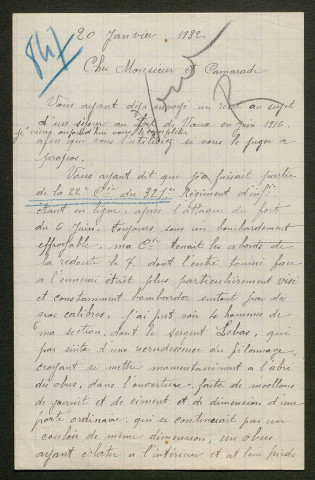 847
20 Janvier 1932
Cher Monsieur et Camarade
Vous ayant déjà envoyé un récit au sujet
d'un séjour au fort de Vaux en Juin 1916
je viens aujourd'hui vous le compléter
afin que vous l'utilisiez si vous le jugez à
propos.
Vous ayant dit que j'en faisait partie
de la 22me Cie du 321me Régiment d'infie
étant en ligne, après l'attaque du fort
du 6 Juin. Toujours sous un bombardement
effroyable, ma Cie tenait les abords de
la redoute le 7. dont l'entrée tourné face
à l'ennemi était plus particulièrement visé
et constamment bombarder surtout par des
gros calibres. J'ai put voir 4 hommes de
ma section. dont le sergent Lebas, qui
par suite d'une recrudescence du pilonnage,
croyant se mettre momentanément à l'abri
des obus, dans l'ouverture faite de moellons
de granit et de ciment et de dimension d'une
porte ordinaire qui se continuait par un
couloir de même dimension, un obus
ayant éclater à l'intérieur et at leur pieds